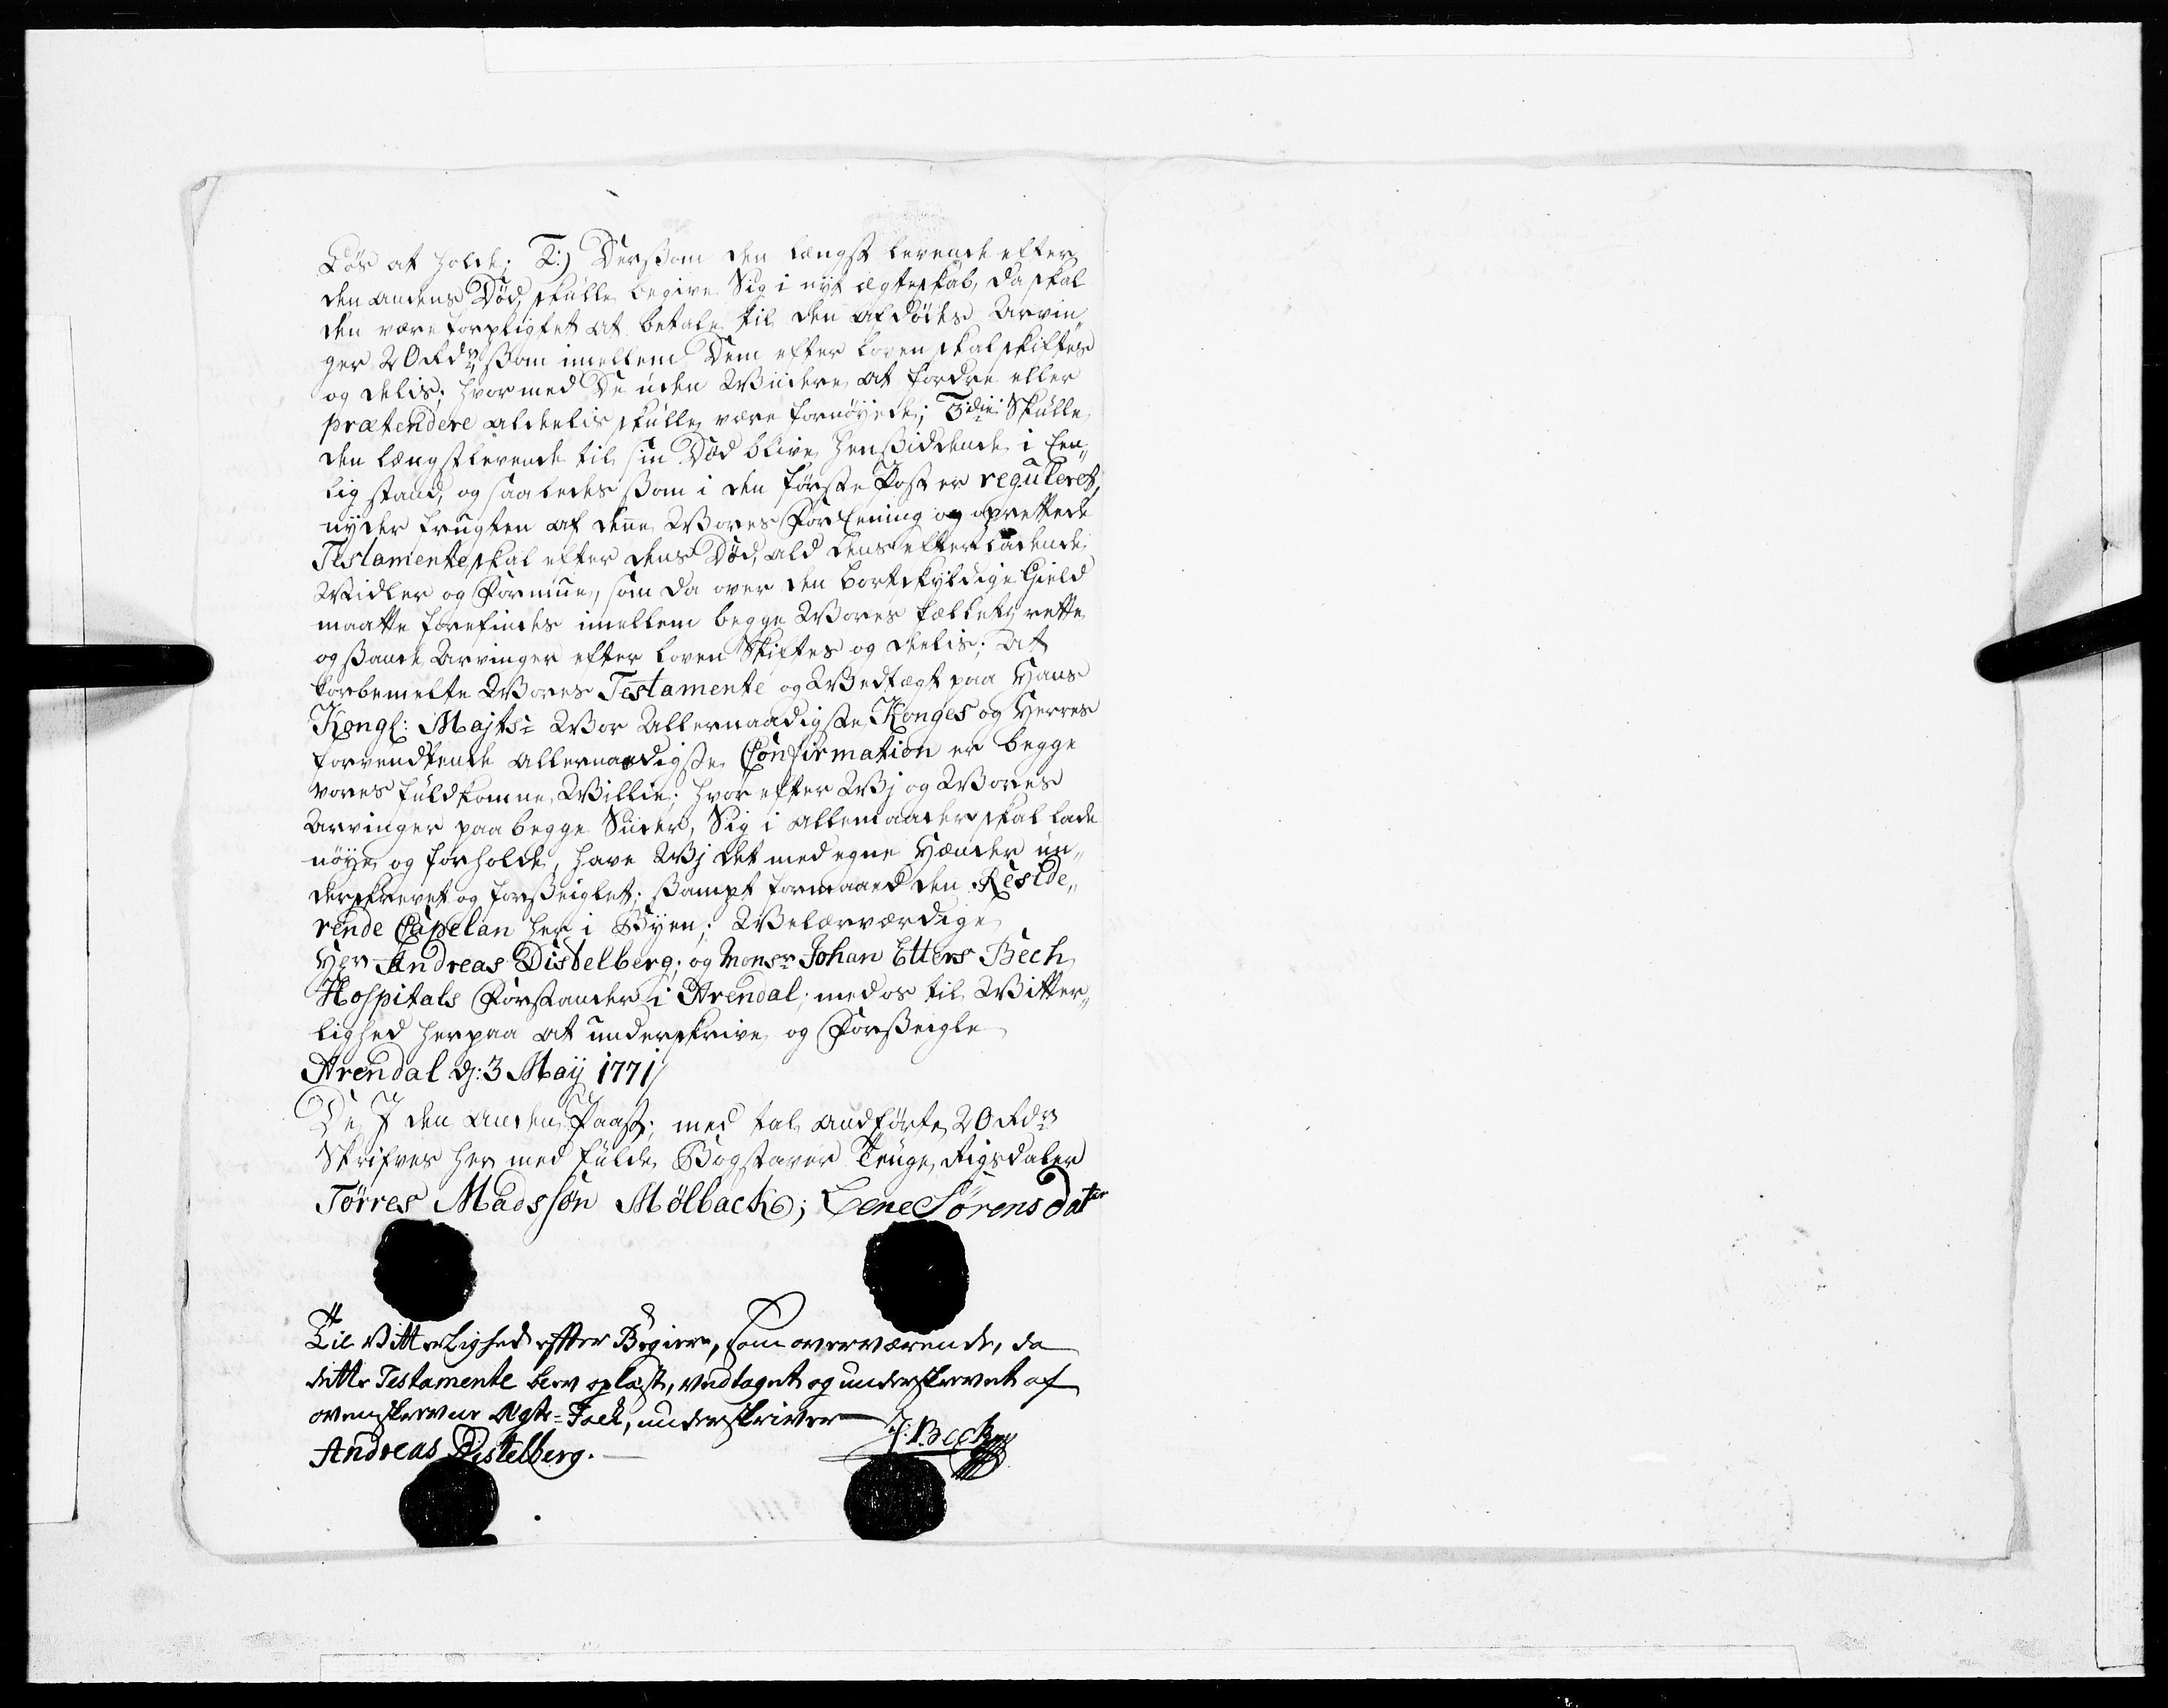 Løs at holde; 2:) Dersom den længst levende efter
den andens Død, skulle begive Sig i nyt ægteskab, da skal
den være forpligtet at betale til den afdødes Arvin„
ger 20 Rdr, som imellem Dem efter Loven skal skiftes
og delis; hvormed De uden Wiidere at fordre eller
prætendere aldeelis skulle være fornøyede; 3die Skulle
den længstlevende til sin Død blive hensiddende i Een„
lig stand, og saaledes som i den første Post er reguleret,
nyder frugten af denne Wores Foreening og oprettede
Testamente, skal efter dens Død, ald dens efterladende
Midler og Formue, som da over den bortskyldige Gield
maatte forefindes imellem begge Wores fælleds rette
og sande Arvinger efter loven Skiftes og deelis; At
forbemelte Wores Testamente og Wedtægt paa Hans
Kongl: Majts: Wor Allernaadigste Konges og Herres
forventende allernaadigste Confirmation er begge
vores fuldkomne Willie; hvor efter Wj og Wores
Arvinger paa begge Siider, Sig i allemaader skal lade
nøye og forholde, have Wj det med egne Hænder un„
derskrevet og forseiglet; sampt formaaed den Reside„
rende Capelan her i Byen; Welærværdige
Herr Andreas Distelberg; og Monsr Johan Etters Bech
Hospitals Forstander i Arendal; med os til Witter„
lighed herpaa at underskrive og Forseigle
Arendal d: 3 Maij 1771/
De J den anden Paast; med tal andførte 20 Rdr
Skrifves her med fulde Bogstaver Tiuge Rigsdaler
Tørres Madssøn Mølback; Lene Sørensdatr
Til Vitterlighed efter Begiere, som overværende, da
dette Testamente blev oplæst, vedtaget og underskrevet af
ovenskrevne Ægte=Folk, underskriver J: Beck
Andreas Distelberg.